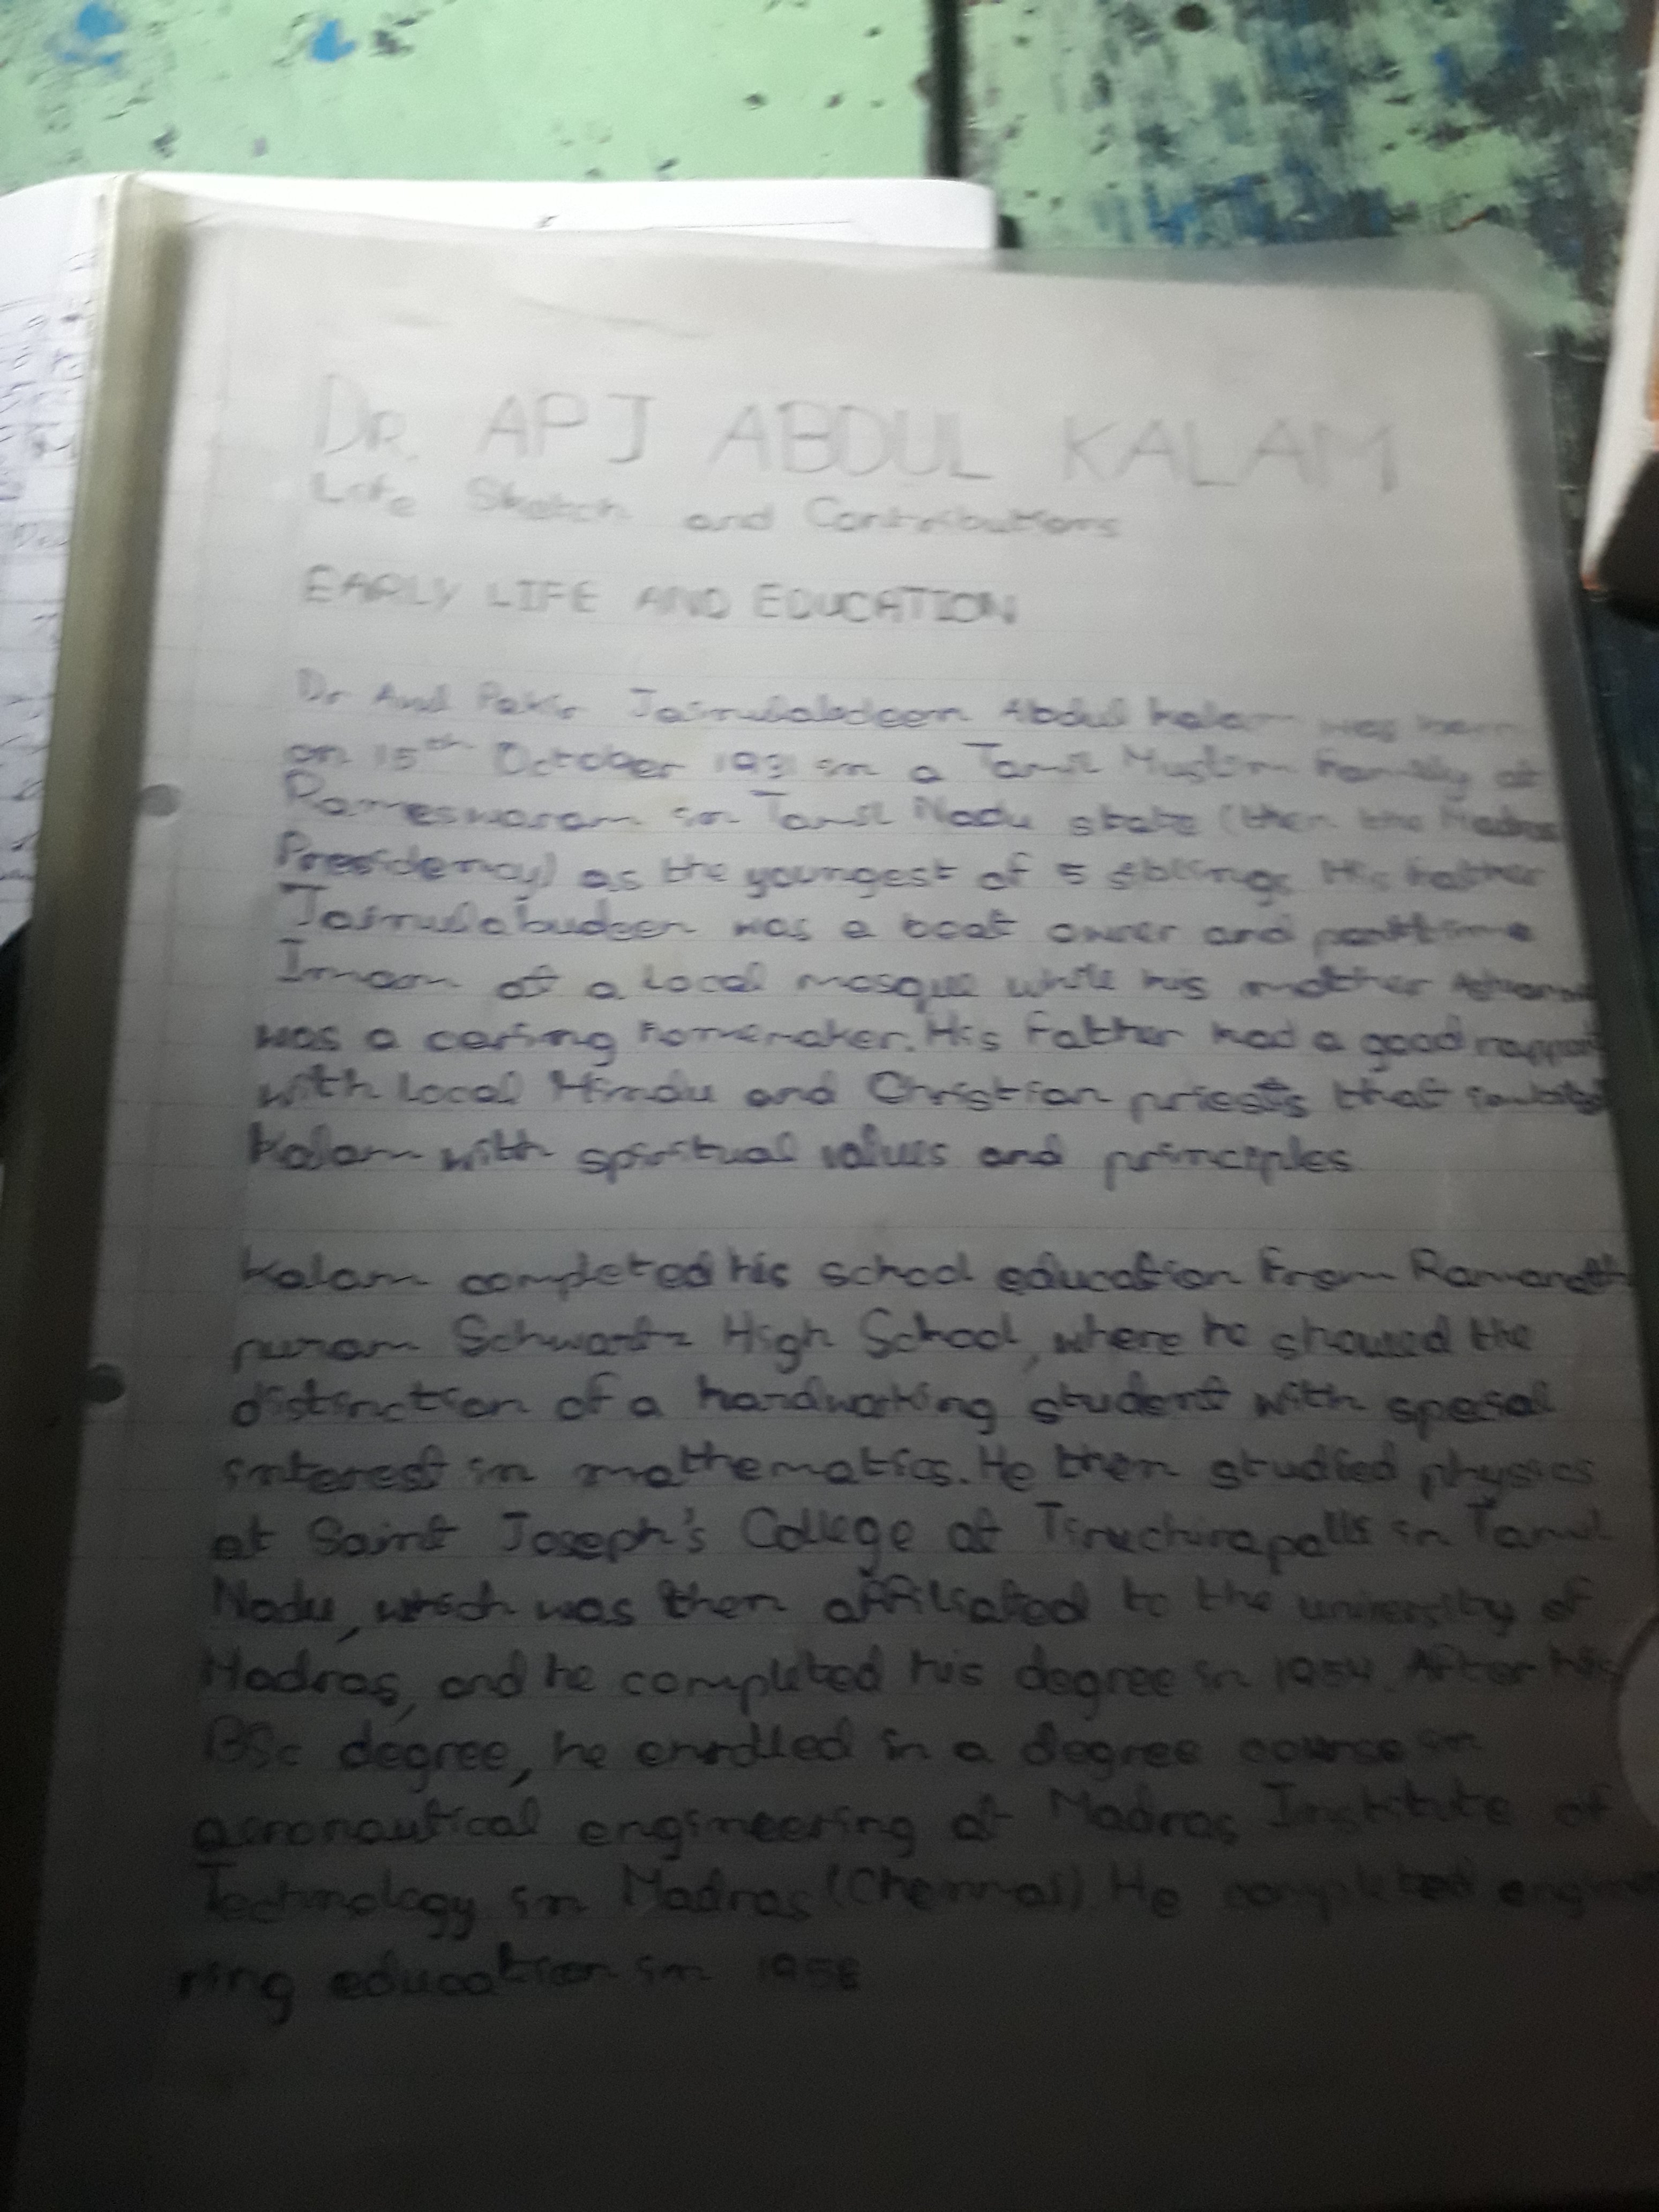 DR. APJ ABDUL KALAM
Life Sketch and Contributions
EARLY LIFE AND EDUCATION
Dr Avul Pakir Jainulabdeen Abdul Kalam was born
on 15th October 1931 in a Tamil Muslim family at
Rameswaram in Tamil Nadu state (then the Madras
Presidency) as the youngest of 5 siblings. His father
Jainulabudeen was a boat owner and parttime
Imam of a local mosque while his mother
was a caring homemaker. His father had a good rapport
with local Hindu and Christian priests that
Kalam with spiritual values and principles
Kalam completed his school education from Ramanath
puram Schwartz High School, where he showed the
distinction of a hardworking student with special
interest in mathematics. He then studied physics
at Saint Joseph's College at Tiruchirapalli in Tamil
Nadu, which was then affiliated to the university of
Madras, and he completed his degree in 1954. After his
BSc degree, he enrolled in a degree course in
aeronautical engineering at Madras Institute of
Technology in Madras (Chennai). He completed
ring education in